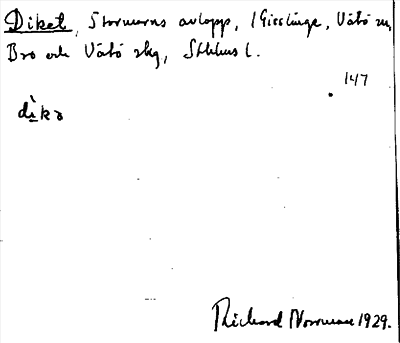 Diket, Stormarns avlopp, (Gisslinge, Vätö sn,
Bro och Vätö skg, Sthlms l.
147
dìkə
Richard Norrman 1929.